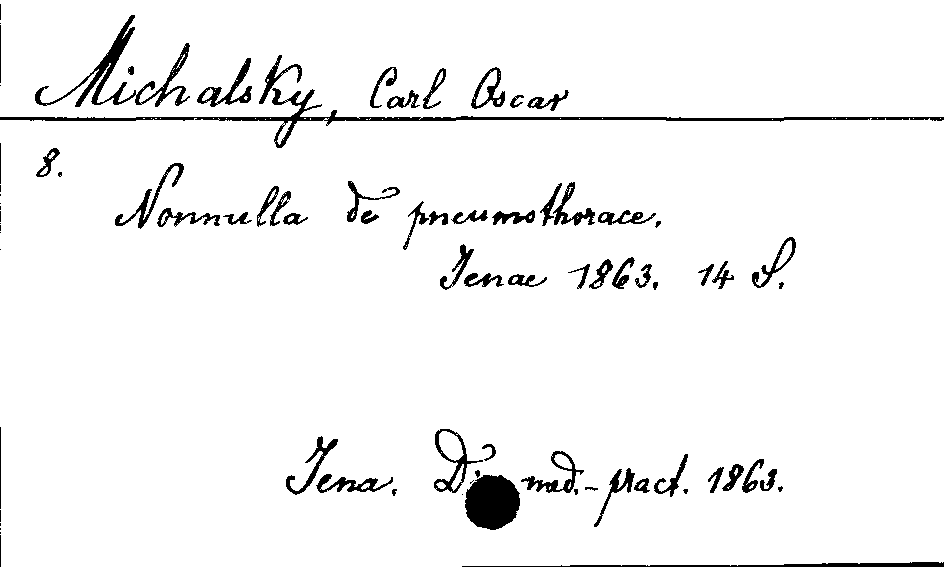 Michalsky, Carl Oscar
8.
Nonnulla de pneumothorace.
Jenae 1863. 14 S.
Jena. Di med.-pract. 1863.